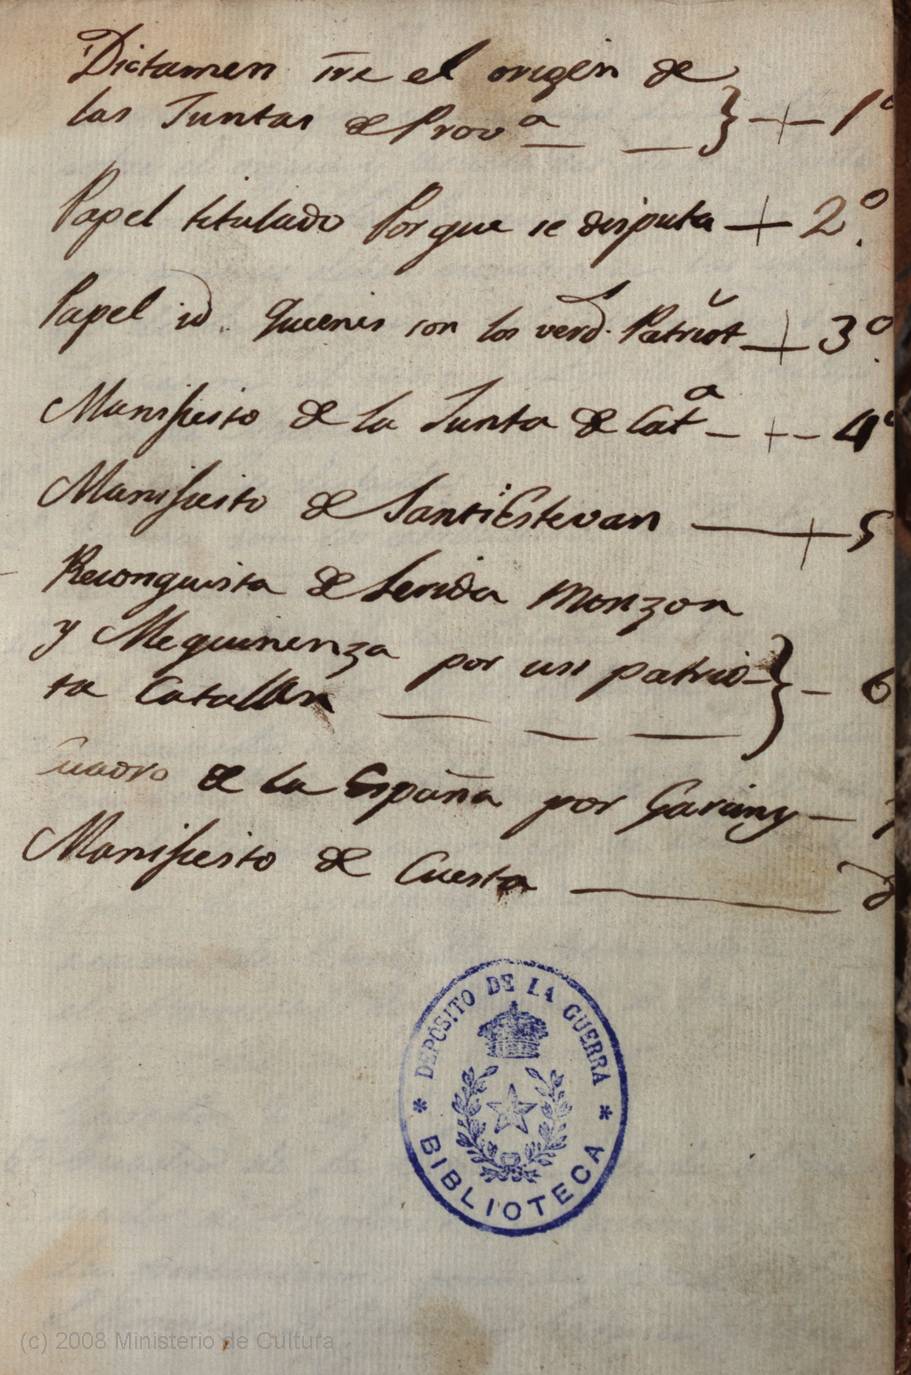 Dictamen sre el origen de
las Juntas de Prov.ª } + 1º
Papel titulado Por que se disputa + 2º.
Papel id. Quienes son los verd.s Patriot.s + 3º.
Manifiesto de la Junta de Cat.ª + 4º
Manifiesto de Santi Estevan + 5
Reconquista de Lerida Monzon
y Mequinenza por un patrio-
ta Catallan } - 6
Cuadro de la España por Gariny - 7
Manifiesto de Cuesta 8
DEPÓSITO DE LA GUERRA
* BIBLIOTECA *
(c) 2008 Ministerio de Cultura